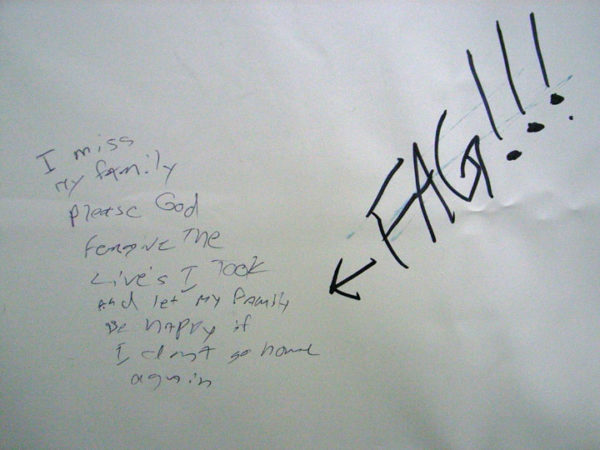 I miss
My family
Please God
Forgive The
Live's I Took
And let My family
Be Happy if
I don't go home
again
FAG!!!